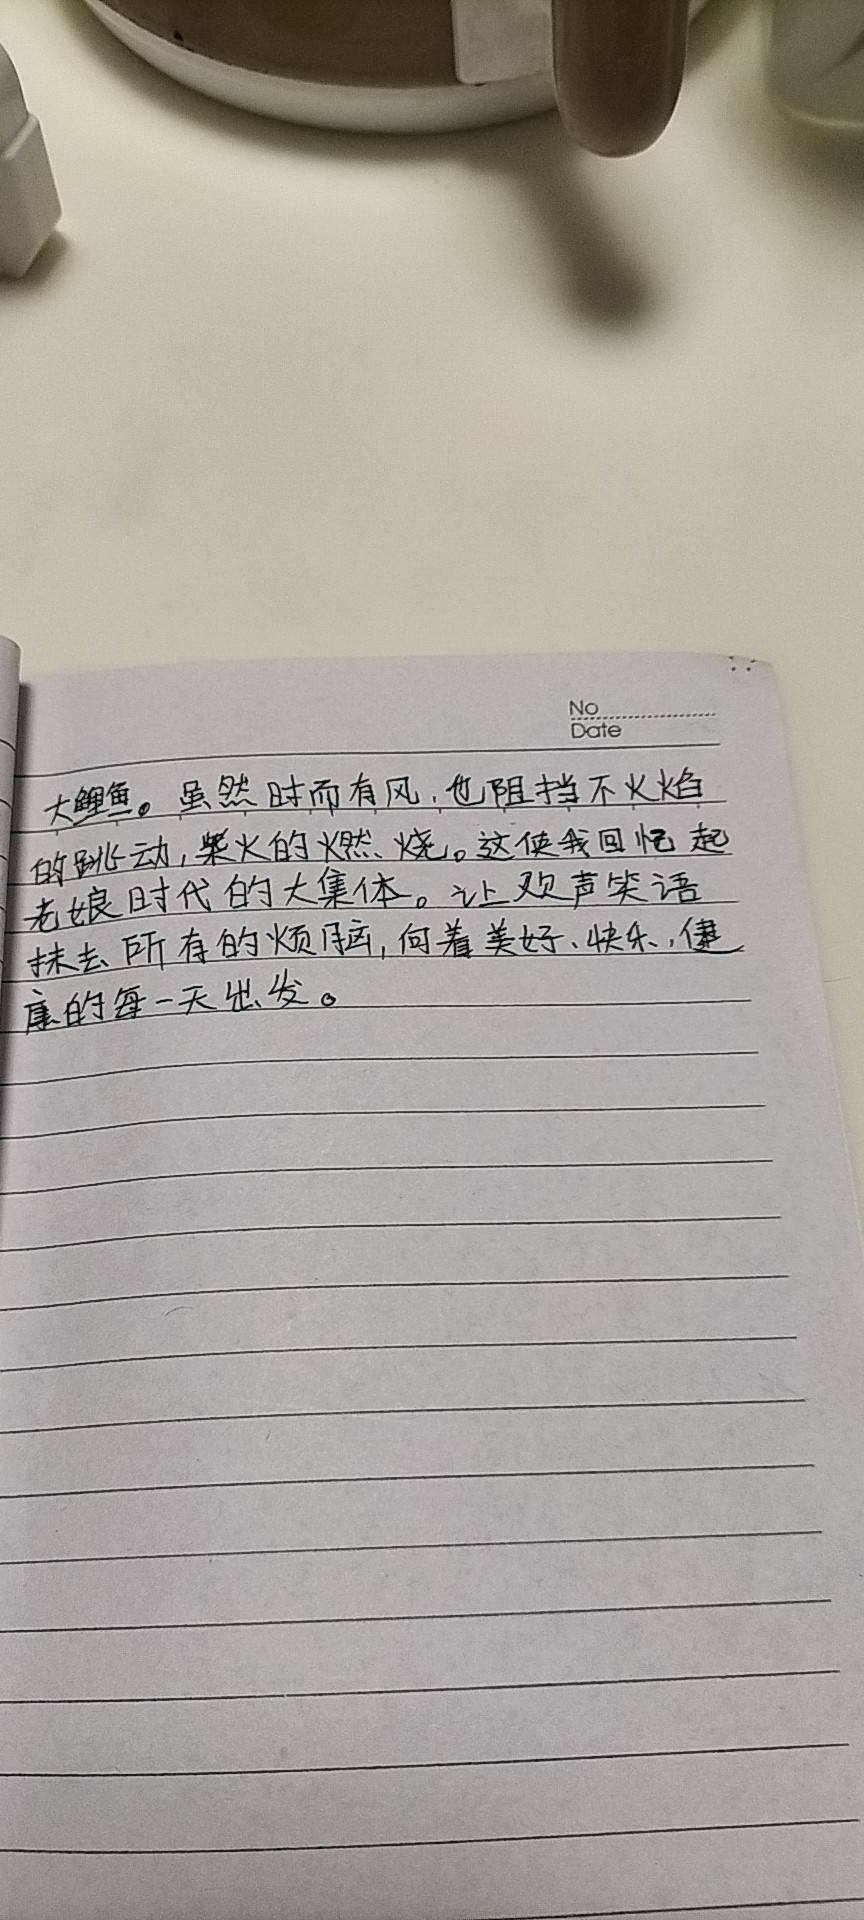 No
Date
大鲤鱼。虽然时而有风,也阻挡不火焰
的跳动,柴火的燃烧。这使我回忆起
老娘时代的大集体。让欢声笑语
抹去所有的烦脑,向着美好、快乐、健
康的每一天出发。